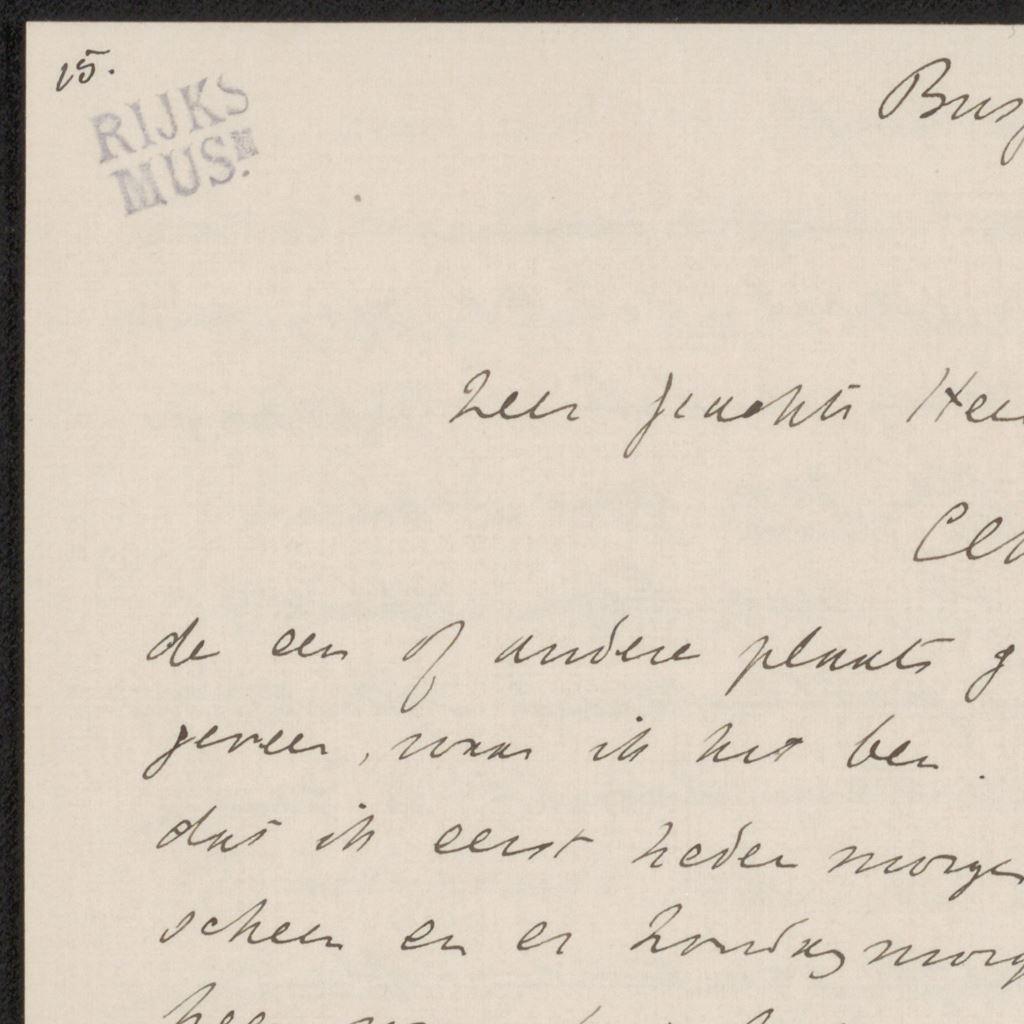 15.
RIJKS
MUSM.
Bus
Zeer geachte Heer
de een of andere plaats g
geven, waar ik het ben.
dat ik eerst heden morgen
scheen en er Zondag morg